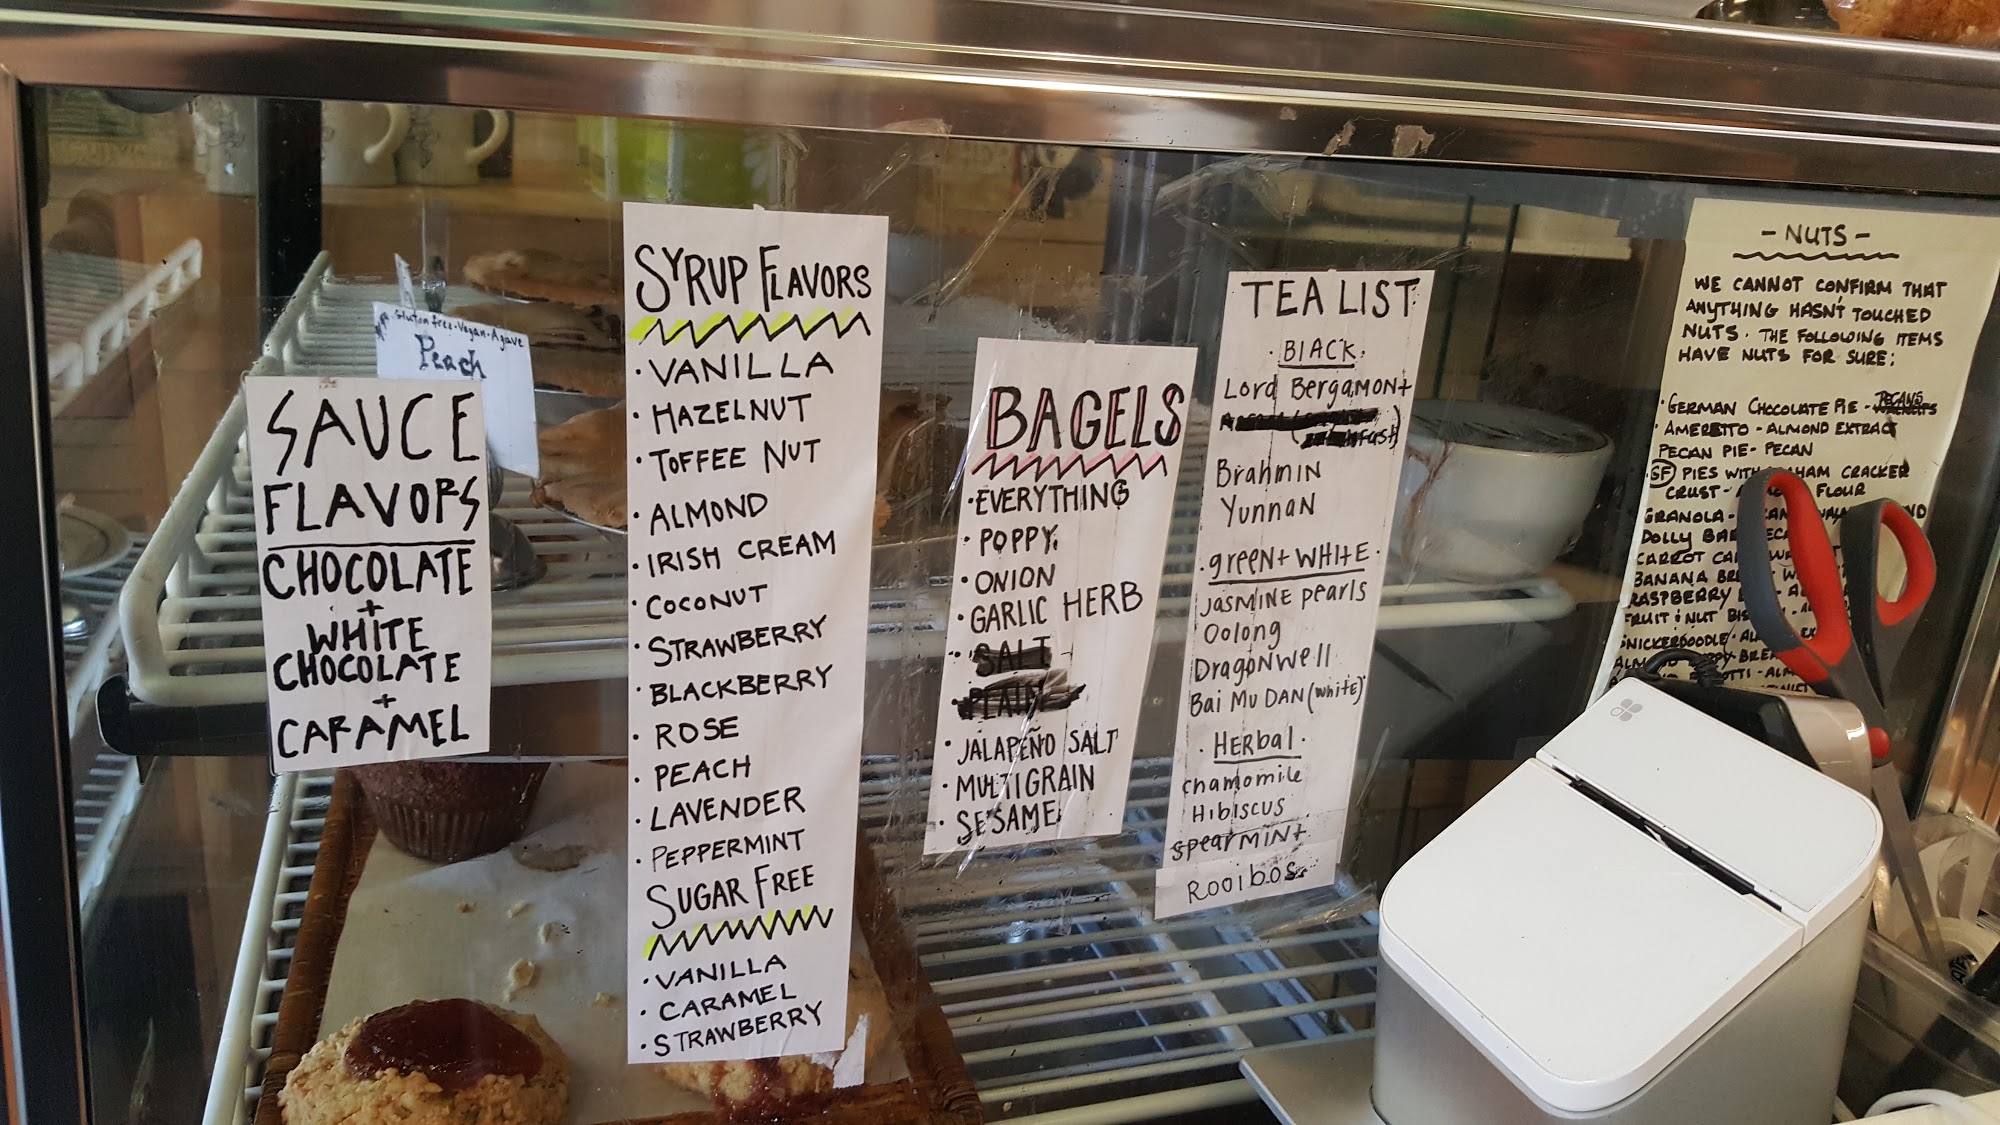 Gluten free · Vegan · Agave
Peach
SAUCE
FLAVORS
CHOCOLATE
+
WHITE
CHOCOLATE
+
CARAMEL
SYRUP FLAVORS
· VANILLA
· HAZELNUT
· TOFFEE NUT
· ALMOND
· IRISH CREAM
· COCONUT
· STRAWBERRY
· BLACKBERRY
· ROSE
· PEACH
· LAVENDER
· PEPPERMINT
SUGAR FREE
· VANILLA
· CARAMEL
· STRAWBERRY
BAGELS
· EVERYTHING
· POPPY
· ONION
· GARLIC HERB
· SALT
· PLAIN
· JALAPEÑO SALT
· MULTIGRAIN
· SESAME
TEA LIST
· BlACK ·
Lord BergaMont
Brahmin
Yunnan
· greeN + WHITE ·
JASMINE pearls
Oolong
DragonWell
Bai Mu DAN (white)
· HERbal ·
chamomile
Hibiscus
spearMiNt
Rooibos
- NUTS -
WE CANNOT CONFIRM THAT
ANYTHING HASN'T TOUCHED
NUTS. THE FOLLOWING ITEMS
HAVE NUTS FOR SURE:
· GERMAN CHOCOLATE PIE - PECANS
· AMERETTO - ALMOND EXTRACT
PECAN PIE - PECAN
· GF PIES WITH CRACKER
CRUST - FLOUR
GRANOLA -
DOLLY
CARROT
BANANA
RASPBERRY
FRUIT & NUT
SNICKERDOODLE -